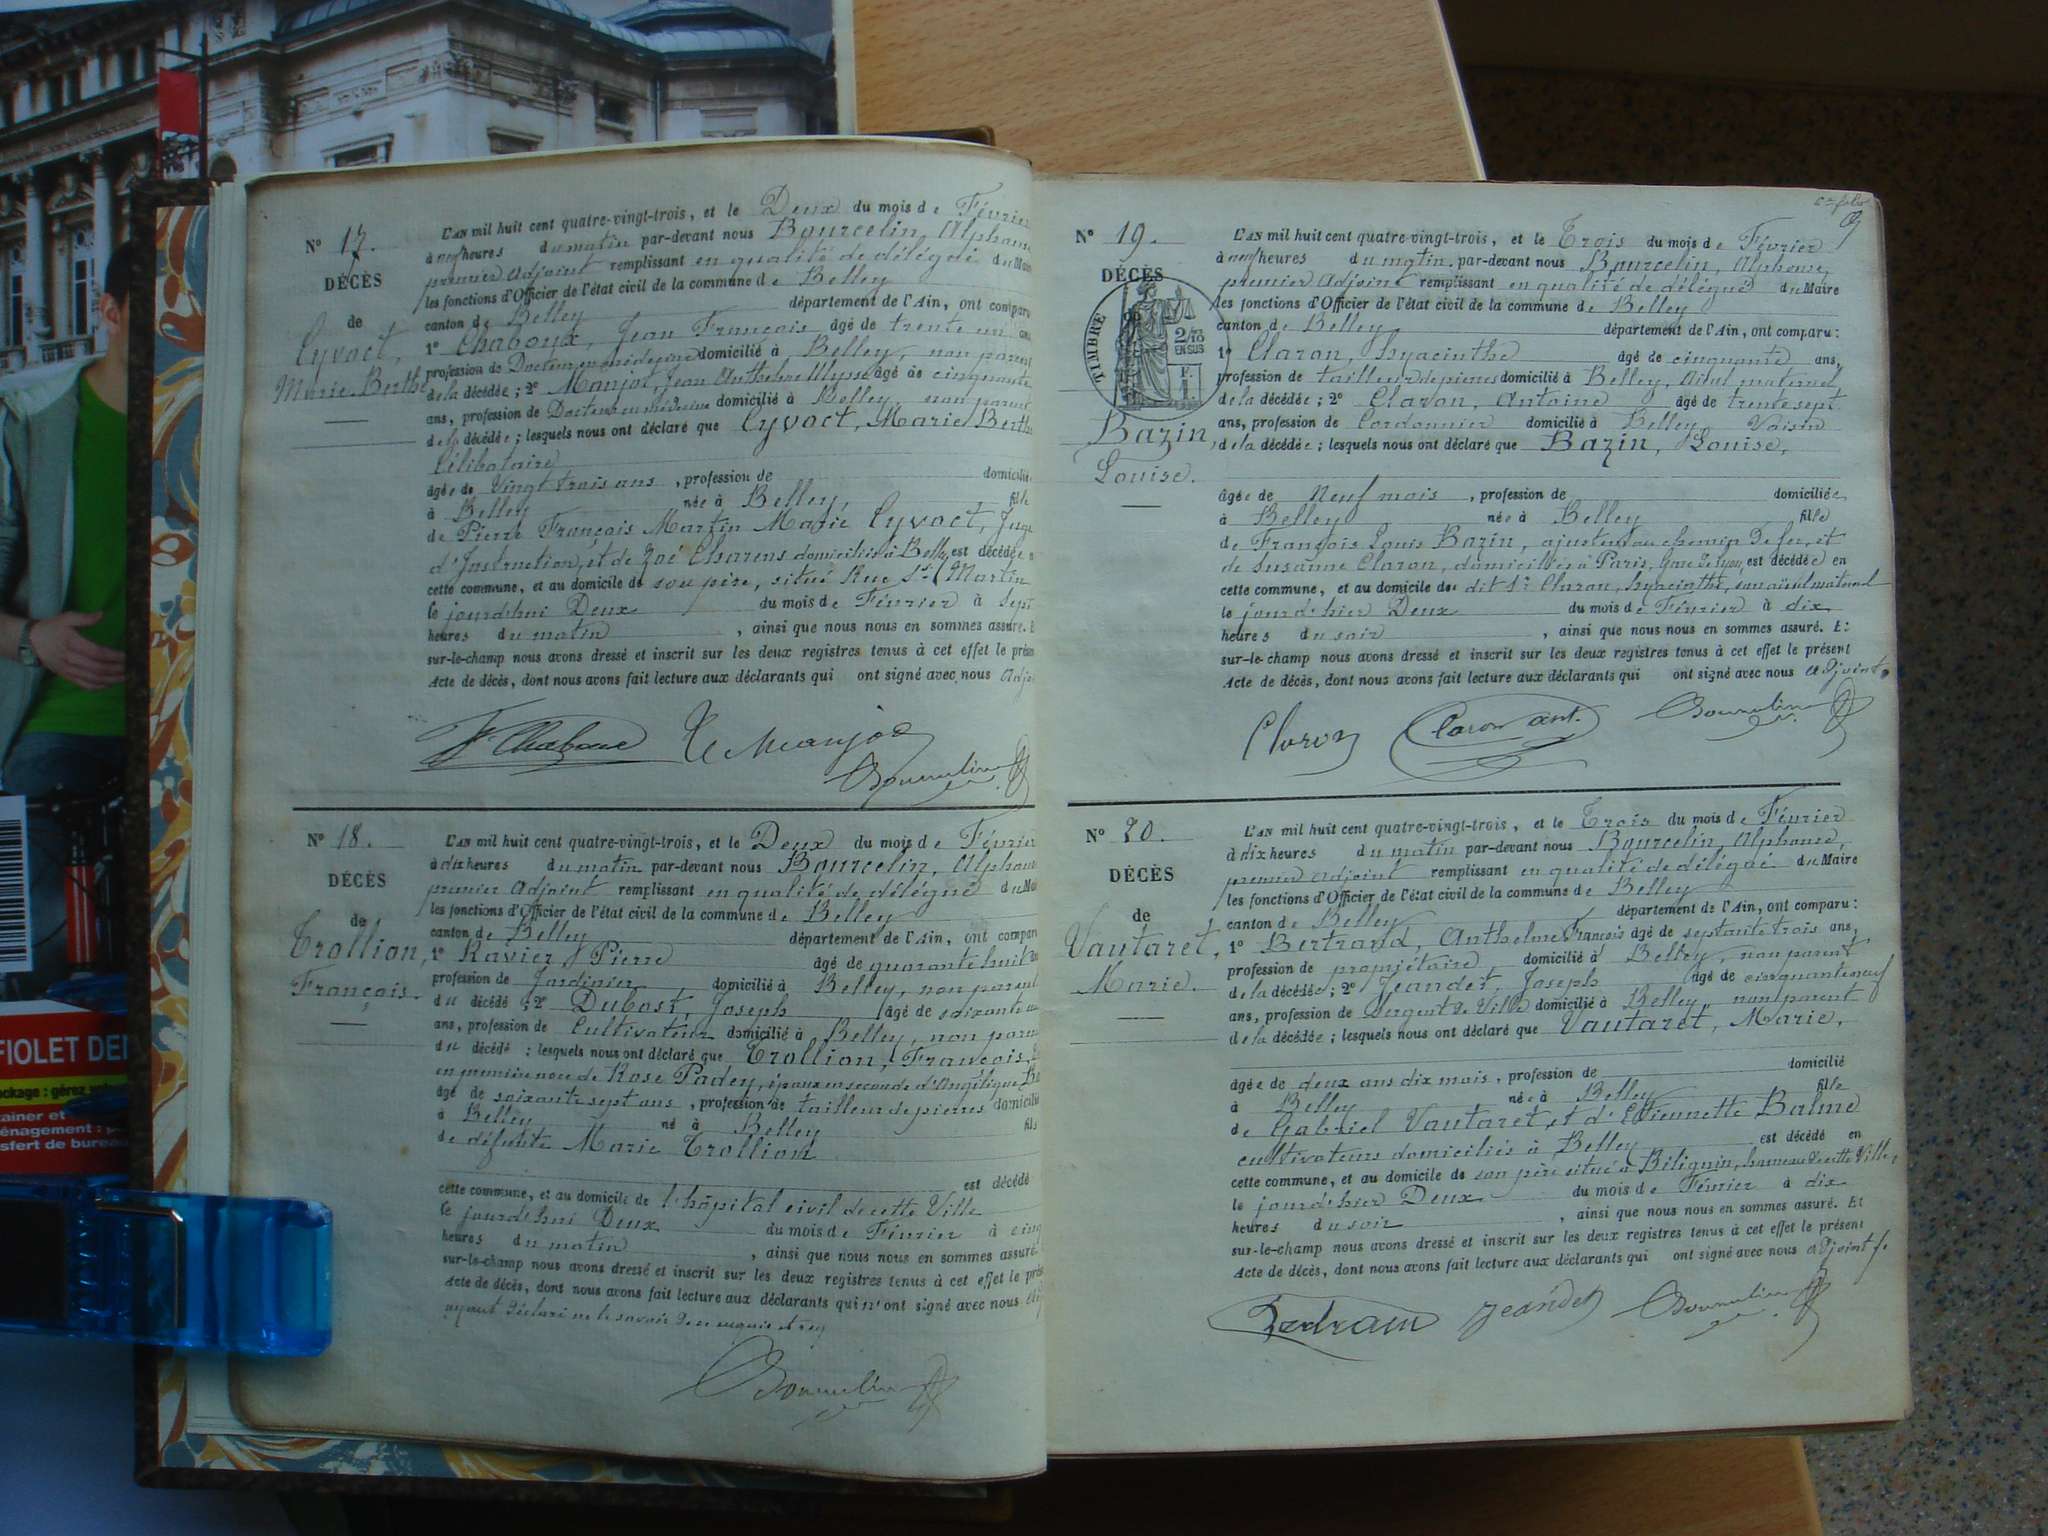 N° 17.
DÉCÈS
de
Cyvoct,
Marie Berthe
L'AN mil huit cent quatre-vingt-trois, et le Deux du mois de Février
à neuf heures du matin par-devant nous Bourcelin, Alphonse
premier Adjoint remplissant en qualité de délégué du Maire
les fonctions d'Officier de l'état civil de la commune de Belley
canton de Belley département de l'Ain, ont comparu
1° Chaboux, Jean François âgé de trente un ans
profession de Docteur en médecine domicilié à Belley, non parent
de la décédée ; 2° Manjot, Jean Anthelme Ulysse âgé de cinquante
ans, profession de Docteur en médecine domicilié à Belley, non parent
de la décédée ; lesquels nous ont déclaré que Cyvoct, Marie Berthe
Célibataire
âgée de Vingt trois ans, profession de domiciliée
à Belley née à Belley, fille
de Pierre François Martin Marie Cyvoct, Juge
d'Instruction, et de Zoé Charens domiciliés à Belley, est décédée en
cette commune, et au domicile de son père, situé Rue St Martin
le jourd'hui Deux du mois de Février à sept
heures du matin, ainsi que nous nous en sommes assuré. E
sur-le-champ nous avons dressé et inscrit sur les deux registres tenus à cet effet le présen
Acte de décès, dont nous avons fait lecture aux déclarants qui ont signé avec nous adjo
N° 18.
DÉCÈS
de
Trollion,
François.
L'AN mil huit cent quatre-vingt-trois, et le Deux du mois de Février
à dix heures du matin par-devant nous Bourcelin, Alphonse
premier Adjoint remplissant en qualité de délégué du Mai
les fonctions d'Officier de l'état civil de la commune de Belley
canton de Belley département de l'Ain, ont comparu
1° Ravier Pierre âgé de quarante huit
profession de Jardinier domicilié à Belley, non parent
du décédé ; 2° Dubost, Joseph âgé de soixante
ans, profession de Cultivateur domicilié à Belley, non parent
du décédé ; lesquels nous ont déclaré que Trollion, François,
en première noce de Rose Padey, époux en seconde d'Angélique
âgé de soixante sept ans, profession de tailleur de pierres domicilié
à Belley né à Belley fils
de défunte Marie Trollion
est décédé
cette commune, et au domicile de l'hôpital civil de cette Ville
le jourd'hui Deux du mois de Février à cinq
heures du matin, ainsi que nous nous en sommes assuré.
sur-le-champ nous avons dressé et inscrit sur les deux registres tenus à cet effet le prés
Acte de décès, dont nous avons fait lecture aux déclarants qui n'ont signé avec nous
ayant déclaré ne le savoir de ce enquis et req
6me folio
N° 19.
DÉCÈS
de
TIMBRE
2/10
EN SUS
F.
1
Bazin,
Louise.
L'AN mil huit cent quatre-vingt-trois, et le Trois du mois de Février
à neuf heures du matin par-devant nous Bourcelin, Alphonse,
premier Adjoint remplissant en qualité de délégué du Maire
les fonctions d'Officier de l'état civil de la commune de Belley
canton de Belley département de l'Ain, ont comparu :
1° Claron, hyacinthe âgé de cinquante ans,
profession de tailleur de pierres domicilié à Belley, Aïeul maternel
de la décédée ; 2° Claron, Antoine âgé de trente sept
ans, profession de Cordonnier domicilié à Belley, Voisin
de la décédée ; lesquels nous ont déclaré que Bazin, Louise,
âgée de Neuf mois, profession de domiciliée
à Belley née à Belley fille
de François Louis Bazin, ajusteur au chemin de fer, et
de Susanne Claron, domiciliés à Paris, Gare de Lyon, est décédée en
cette commune, et au domicile de dit 1° Claron, hyacinthe, son aïeul maternel
le jour d'hier Deux du mois de Février à dix
heures du soir, ainsi que nous nous en sommes assuré. Et
sur-le-champ nous avons dressé et inscrit sur les deux registres tenus à cet effet le présent
Acte de décès, dont nous avons fait lecture aux déclarants qui ont signé avec nous adjoint.
Claron Claron ant.
N° 20.
DÉCÈS
de
Vautaret,
Marie.
L'AN mil huit cent quatre-vingt-trois, et le Trois du mois de Février
à dix heures du matin par-devant nous Bourcelin, Alphonse,
premier Adjoint remplissant en qualité de délégué du Maire
les fonctions d'Officier de l'état civil de la commune de Belley
canton de Belley département de l'Ain, ont comparu :
1° Bertrand, Anthelme François âgé de septante trois ans,
profession de propriétaire domicilié à Belley, non parent
de la décédée ; 2° Jeandet, Joseph âgé de cinquante neuf
ans, profession de Sergent de Ville domicilié à Belley, non parent
de la décédée ; lesquels nous ont déclaré que Vautaret, Marie,
âgée de deux ans dix mois, profession de domicilié
à Belley née à Belley fille
de Gabriel Vautaret, et d'Etiennette Balme
cultivateurs domiciliés à Belley est décédé en
cette commune, et au domicile de son père situé à Bilignin, hameau de cette Ville,
le jour d'hier Deux du mois de Février à dix
heures du soir, ainsi que nous nous en sommes assuré. Et
sur-le-champ nous avons dressé et inscrit sur les deux registres tenus à cet effet le présent
Acte de décès, dont nous avons fait lecture aux déclarants qui ont signé avec nous adjoint
Jeandet
FIOLET DE
ockage : gérez
tainer et
énagement :
sfert de bureau